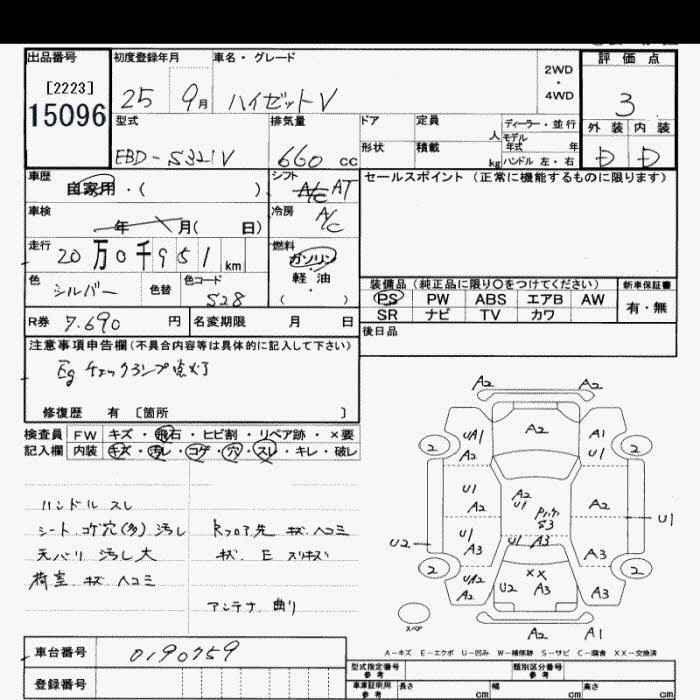 出品番号
[2223]
15096
初度登録年月
25 9月
車名・グレード
ハイゼットV
2WD
・
4WD
評価点
3
外装 内装
D D
型式
EBD-S321V
排気量
660 cc
ドア
形状
定員
人
積載
kg
ディーラー・並行
モデル
年式 年
ハンドル 左・右
車歴
自家用・( )
シフト
A/C AT
車検
年 月( 日)
冷房
A/C
走行
20万0千951 km
燃料
ガソリン
軽油
( ・ )
色
シルバー
色替
色コード
S28
R券 7.690 円
名変期限 月 日
セールスポイント(正常に機能するものに限ります)
装備品(純正品に限り〇をつけてください)
新車保証書
PS PW ABS エアB AW
有・無
SR ナビ TV カワ
後日品
注意事項申告欄(不具合内容等は具体的に記入して下さい)
Eg チェックランプ点灯
修復歴 有 〔箇所 〕
検査員
記入欄
FW キズ・飛石・ヒビ割・リペア跡・×要
内装 キズ・汚レ・コゲ・穴・スレ・キレ・破レ
ハンドル スレ
シート コゲ穴(多) 汚レ
天バリ 汚レ大
荷室 キズ ヘコミ
Rフロア先 キズ ヘコミ
キズ E スリキズ
アンテナ 曲り
A2 A2
A2
UA1 A1
2 A2 U1 2
U1 A2
A2 U1 A2
S3
U1 U1 A3 U1
U2 A3 A3
2 XX 2
UA2 U2 A3 A3
A2
スペア
A2 A1
A-キズ E-エクボ U-凹み W-補修跡 S-サビ C-腐食 XX-交換済
車台番号 0190759
登録番号
型式指定番号
参考
類別区分番号
参考
車庫証明用
参考
長さ cm 幅 cm 高さ cm